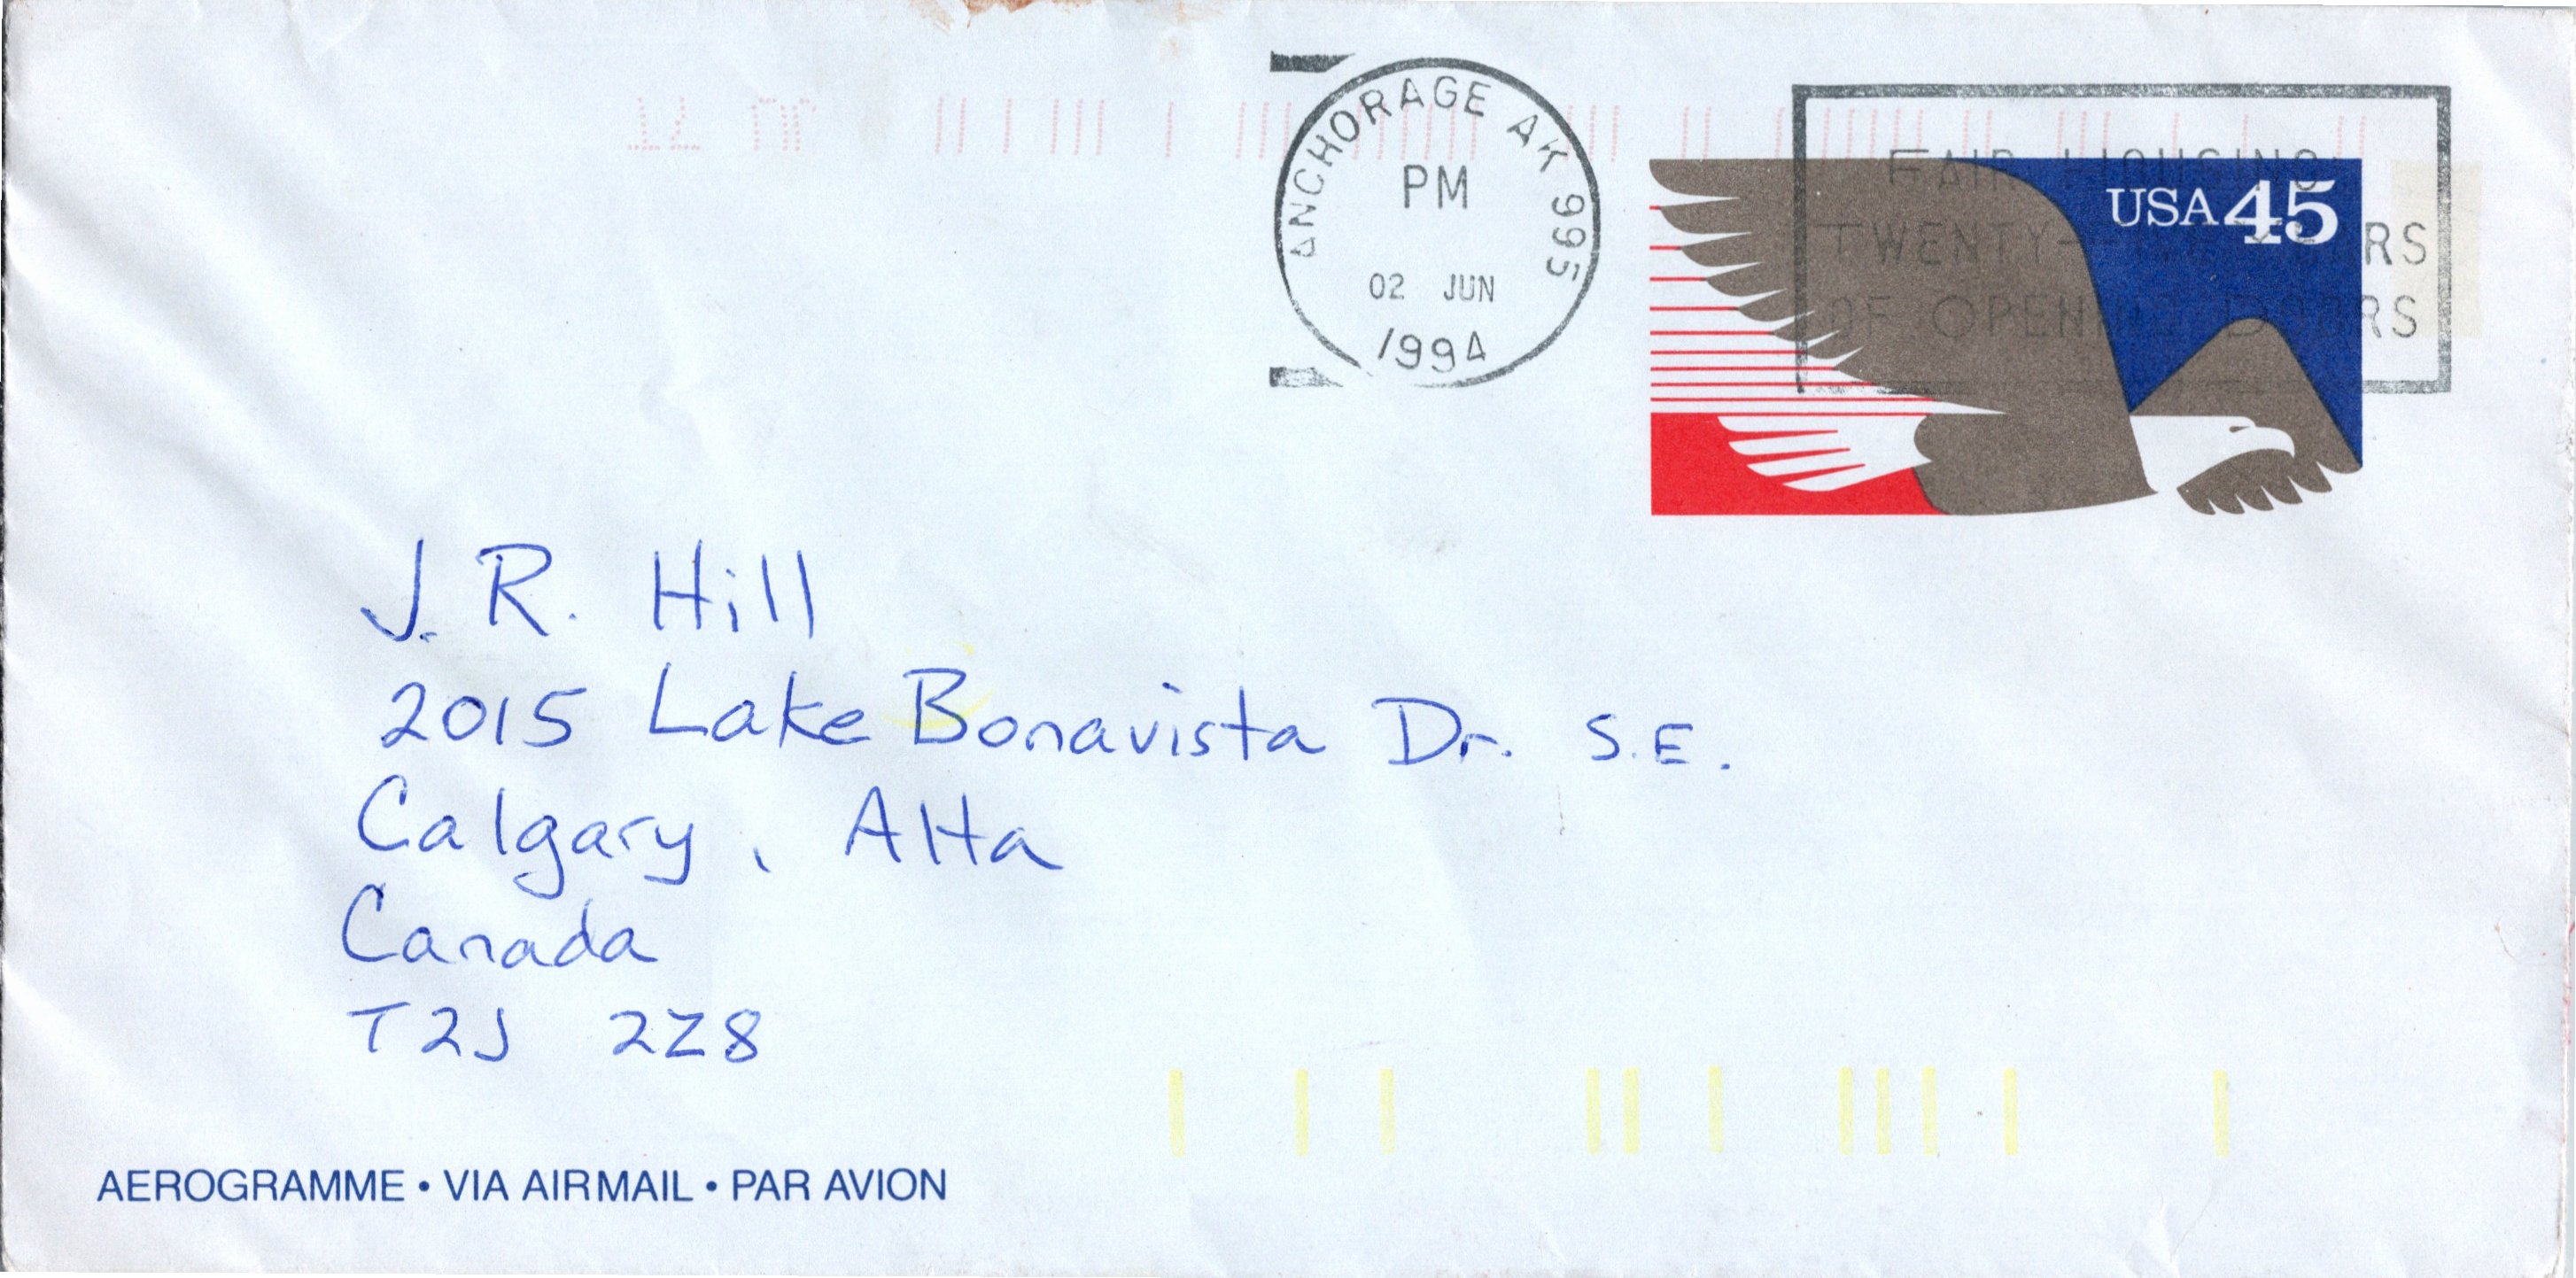 ANCHORAGE AK 995
PM
02 JUN
1994
FAIR HOUSING
TWENTY-FIVE YEARS
OF OPENING DOORS
USA 45
J. R. Hill
2015 Lake Bonavista Dr. S.E.
Calgary, Alta
Canada
T2J 2Z8
AEROGRAMME • VIA AIRMAIL • PAR AVION